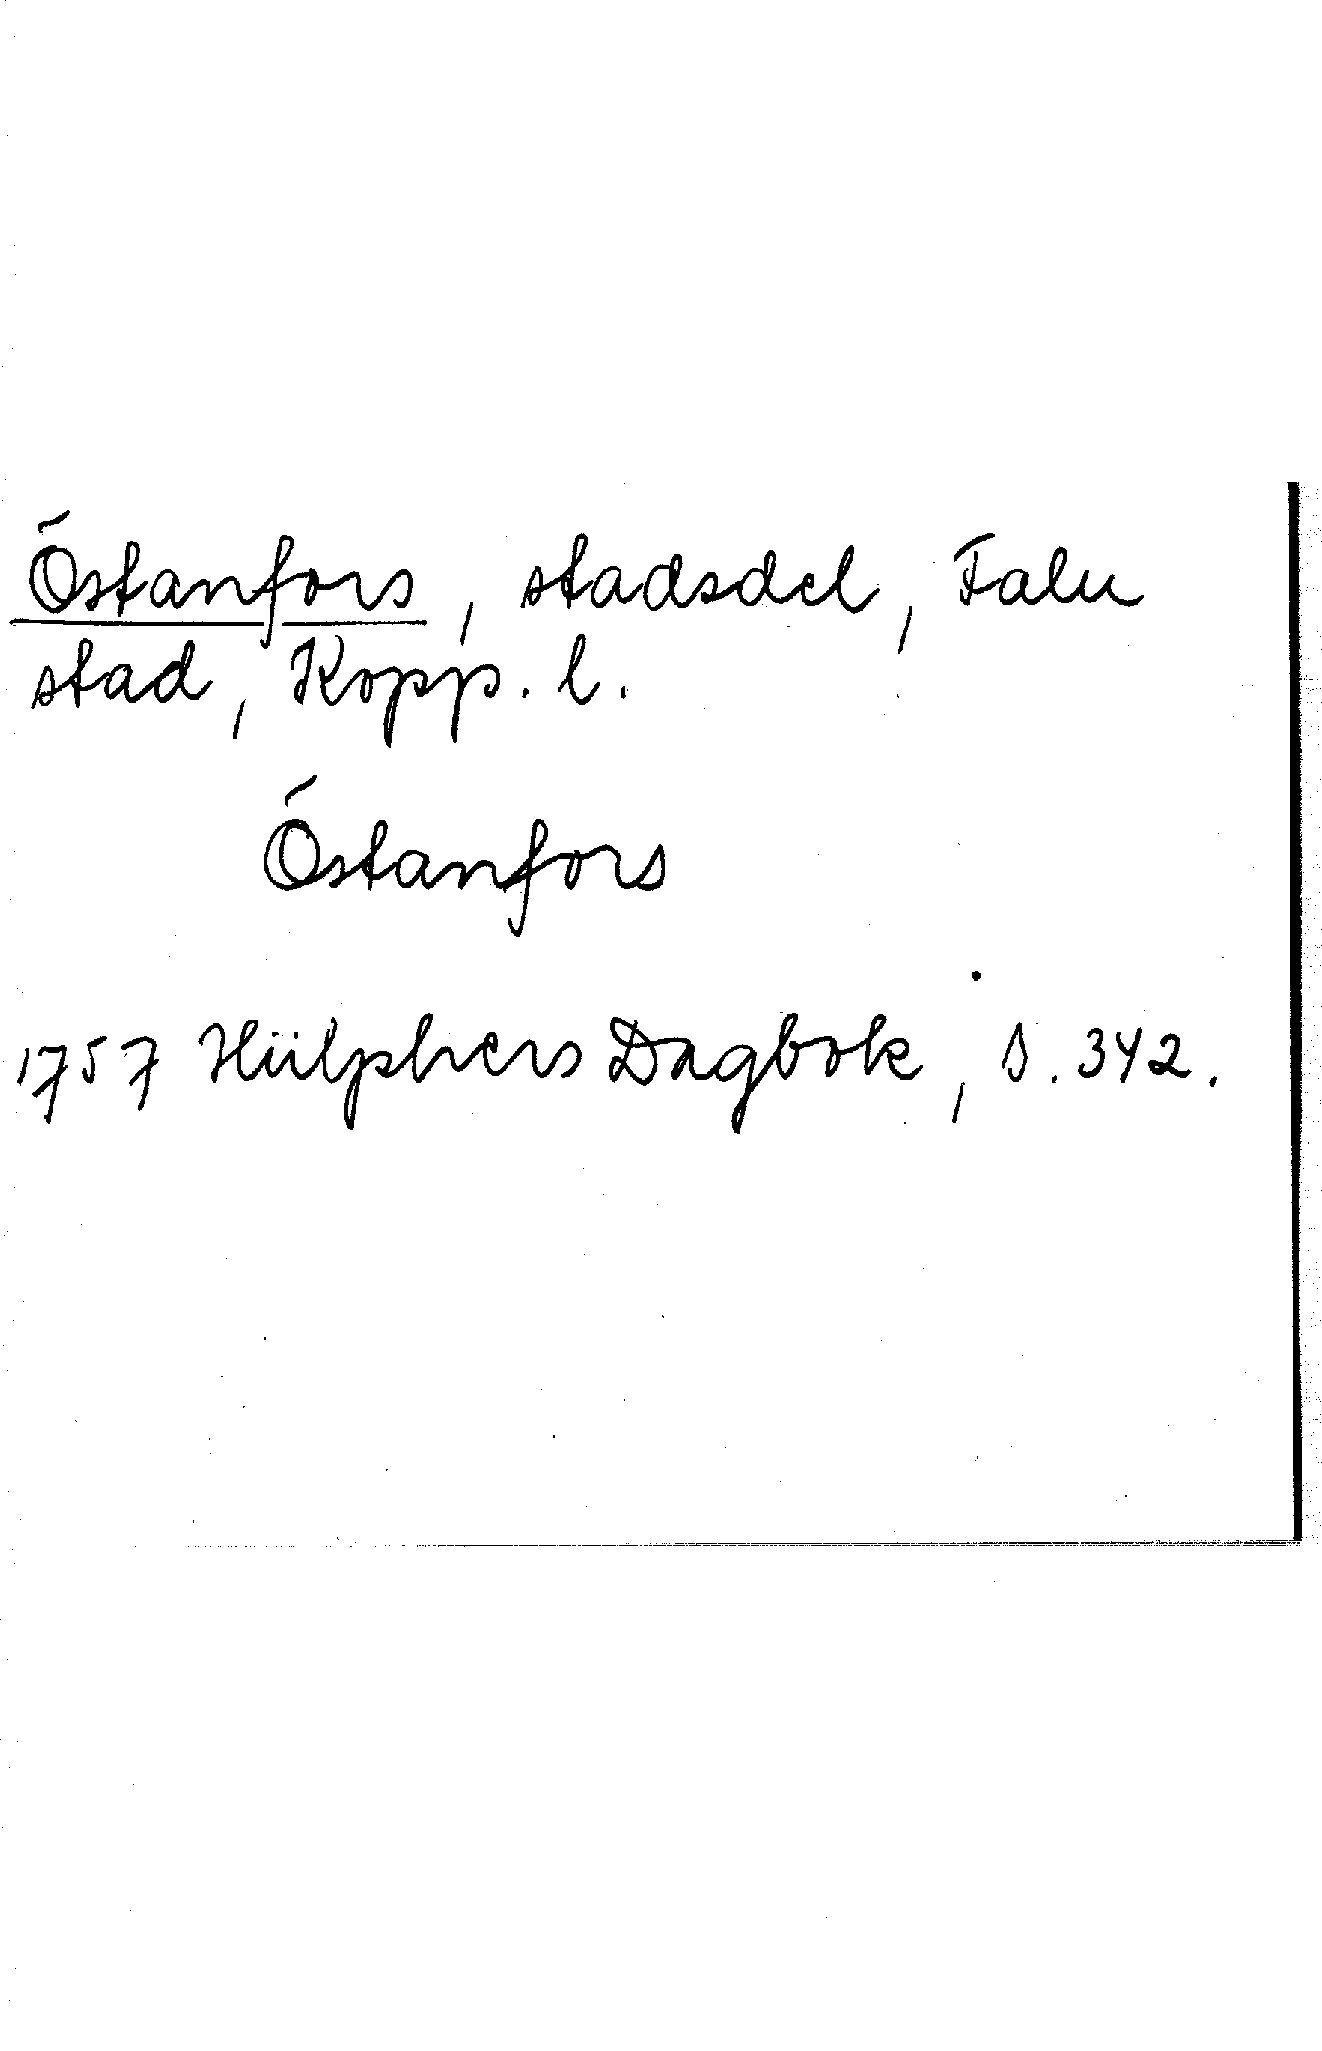 Östanfors, stadsdel, Falu
stad, Kopp. l.
Östanfors
1757 Hülphers Dagbok, S. 342.